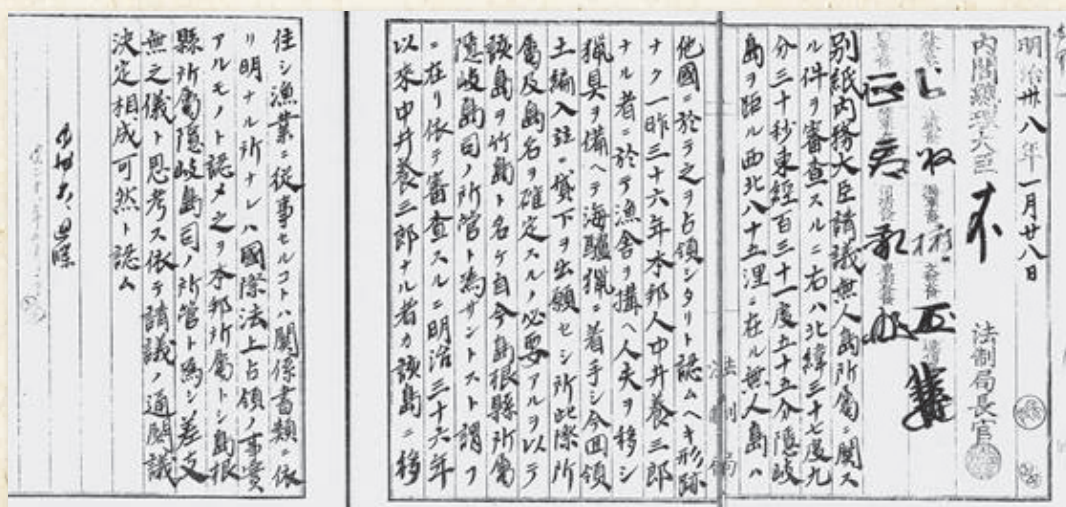 明治卅八年一月廿八日
内閣總理大臣
法制局長官
別紙内務大臣請議無人島所属ニ関ス
ル件ヲ審査スルニ右ハ北緯三十七度九
分三十秒東経百三十一度五十五分隠岐
島ヲ距ル西北八十五浬ニ在ル無人島ハ
他國ニ於テ之ヲ占領シタリト認ムヘキ形跡
ナク一昨三十六年本邦人中井養三郎
ナル者ニ於テ漁舎ヲ搆ヘ人夫ヲ移シ
猟具ヲ備ヘテ海驢猟ニ着手シ今回領
土編入並ニ貸下ヲ出願セシ所此際所
属及島名ヲ確定スルノ必要アルヲ以テ
該島ヲ竹島ト名ケ自今島根縣所属
隠岐島司ノ所管ト為サントスト謂フ
ニ在リ依テ審査スルニ明治三十六年
以来中井養三郎ナル者カ該島ニ移
住シ漁業ニ従事セルコトハ関係書類ニ依
リ明ナル所ナレハ國際法上占領ノ事實
アルモノト認メ之ヲ本邦所属トシ島根
縣所属隠岐島司ノ所管ト為シ差支
無之儀ト思考ス依テ請議ノ通閣議
決定相成可然ト認ム
法制局